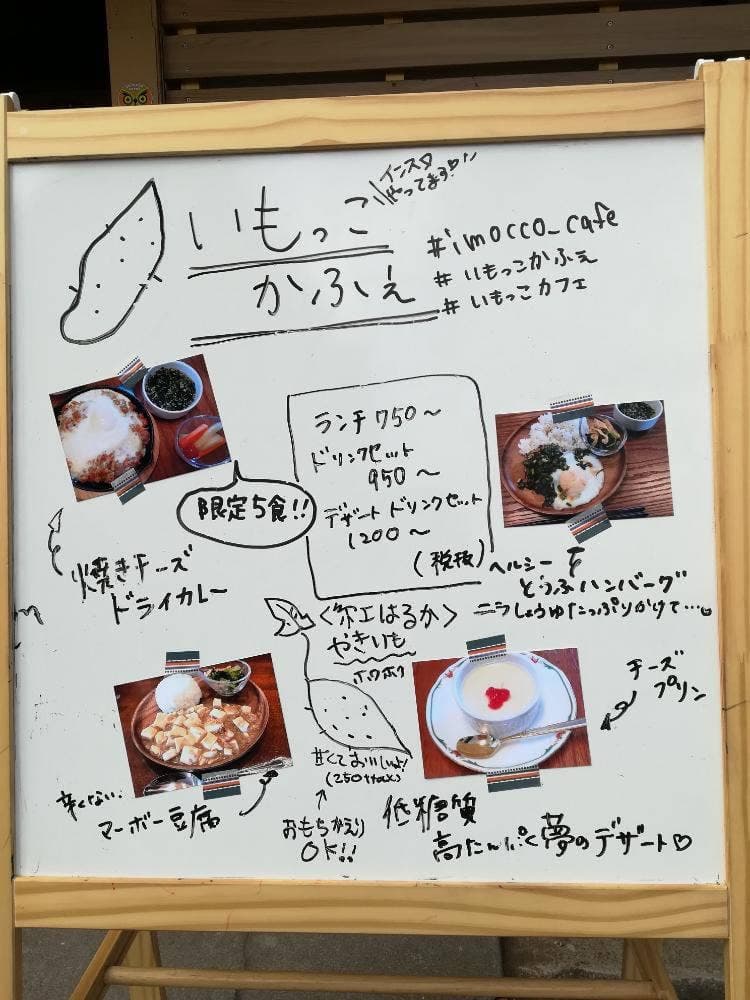 いもっこ
かふぇ
インスタ
やってます!!
#imocco_cafe
#いもっこかふぇ
#いもっこカフェ
ランチ 750〜
ドリンクセット
950〜
デザートドリンクセット
1200〜
(税抜)
限定5食!!
焼きチーズ
ドライカレー
ヘルシー
とうふハンバーグ
ニラしょうゆたっぷりかけて…
〈紅はるか〉
やきいも
ホクホク
甘くておいしいよ!
(250+tax)
おもちかえり
OK!!
チーズ
プリン
辛くない。
マーボー豆腐
低糖質
高たんぱく夢のデザート♡